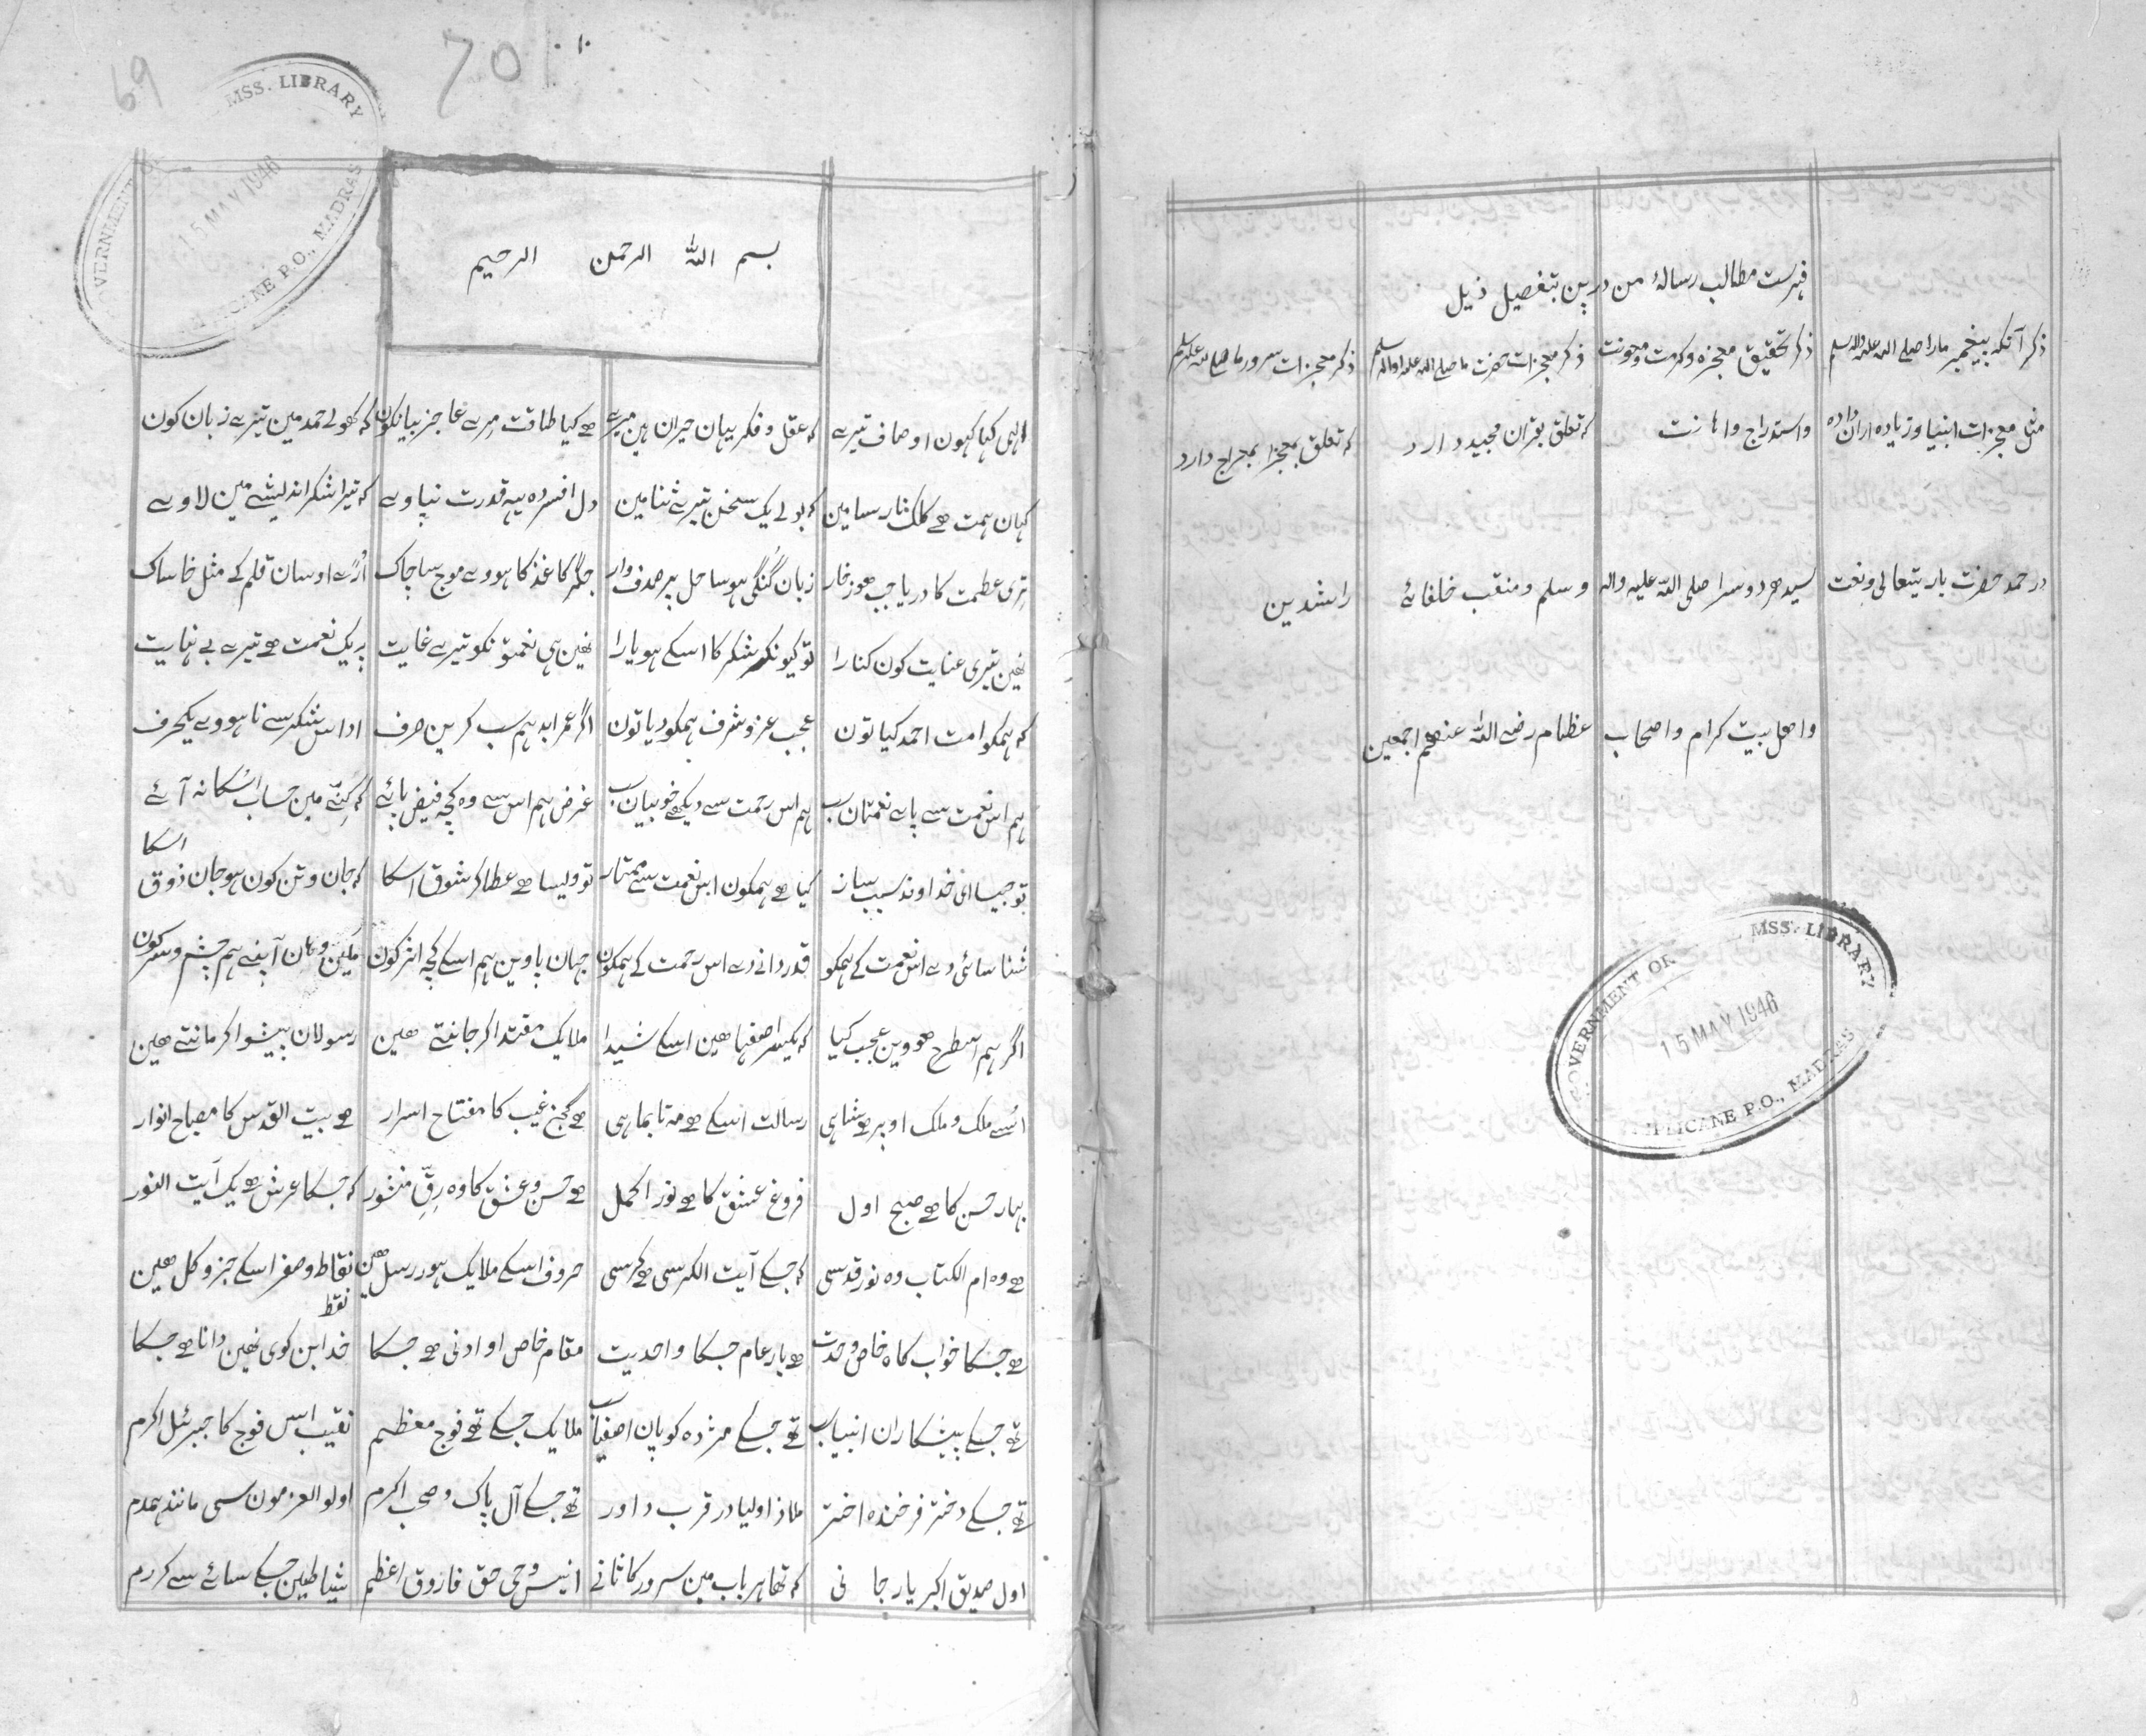 فہرست مطالب رسالۂ من درپن بتفصیل ذیل
ذکر آنکہ پیغمبر ما را صلی اللہ علیہ والہ وسلم ذکر تحقیق معجزہ وکرمت ومعونت ذکر معجزات حضرت ما صلی اللہ علیہ والہ وسلم ذکر معجزات سرور ما صلی اللہ علیہ وسلم
مثل معجزات انبیا وزیادہ ازان دادہ واستدراج واہانت کہ تعلق بقران مجید دارد کہ تعلق بمعراج دارد
در حمد حضرت باریتعالی ونعت سید ہر دوسرا صلی اللہ علیہ والہ وسلم ومنقب خلفائے راشدین
واھل بیت کرام واصحاب عظام رضی اللہ عنھم اجمعین
MSS. LIBRARY
GOVERNMENT OR
15 MAY 1946
TRIPLICANE P.O., MADRAS
69
701
MSS. LIBRARY
15 MAY 1946
P.O., MADRAS
بسم اللہ الرحمن الرحیم
الہی کیا کہون اوصاف تیرے کہ عقل وفکر یہان حیران ہین میرے ھے کیا طاقت مرے عاجز بیانکون کہ کھولے حمد مین تیرے زبان کون
کہان ہمت ھے کلک نارسا مین کہ بولے یک سخن تیرے ثنا مین دل افسردہ یہہ قدرت نپاوے کہ تیرا شکر اندیشے مین لاوے
تری عظمت کا دریا جب ھو زخار زبان گنگی ہو ساحل پر صدف وار جگر کاغذ کا ہووے موج سا چاک اڑے اوسان قلم کے مثل خاساک
نھین تیری عنایت کون کنارا تو کیونکر شکر کا اسکے ہو یارا نھین ہی نعمتونکو تیرے غایت ہریک نعمت ھے تیرے بے نہایت
کہ ہمکو امت احمد کیا تون عجب عز وشرف ہمکو دیا تون اگر عمر ابد ہم سب کرین صرف ادا اس شکر سے نا ہووے یکحرف
ہم اس نعمت سے پاے نعمتان سب ہم اس رحمت سے دیکھے خوبیان سب غرض ہم اس سے وہ کچہ فیض پائے کہ گنتے مین حساب اسکا نہ آئے
تو جیسا ای خداوند سبب ساز کیا ھے ہمکون اس نعمت سے ممتاز تو ویسا ھے عطا کر شوق اسکا کہ جان وتن کون ہو جان ذوق اسکا
شناسائی دے اس نعمت کے ہمکو قدردانے دے اس رحمت کے ہمکون جہان پاوین ہم اسکے کچہ اثر کون ملین وہان آپنے ہم چشم وسر کون
اگر ہم اسطرح ھووین عجب کیا کہ یکسر اصفیا ھین اسکے شیدا ملایک مقتدا کر جانتے ھین رسولان پیشوا کر مانتے ھین
اسے ملک وملک اوپر ھے شاہی رسالت اسکے ھے مہ تا بماہی ھے گنج غیب کا مفتاح اسرار ھے بیت القدس کا مصباح انوار
بہار حسن کا ھے صبح اول فروغ عشق کا ھے نور اکمل ھے حسن وعشق کا وہ رق منشور کہ جسکا عرش ھے یک آیت النور
ھے وہ ام الکتاب وہ نور قدسی کہ جسکے آیت الکرسی ھے کرسی حروف اسکے ملایک ہور رسل ھین نقاط وصفر اسکے جز وکل ھین
نقط
ھے جسکا خواب گاہ خاص وحدت ھے بار عام جسکا واحدیت مقام خاص او ادنی ھے جسکا خدا بن کوی نھین دانا ھے جسکا
تھے جسکے پیشکاران انبیا سب تھے جسکے مژدہ گویان اصفیا سب ملایک جسکے تھے فوج معظم نقیب اس فوج کا جبرئیل اکرم
تھے جسکے دختر فرخندہ اختر ملاذ اولیا در قرب داور تھے جسکے آل پاک وصحب اکرم اولو العزمون سی مانند ہمدم
اول صدیق اکبر یار جانی کہ تھا ہر باب مین سرور کا ثانے انیس وحی حق فاروق اعظم شیاطین جسکے سائے سے کر رم